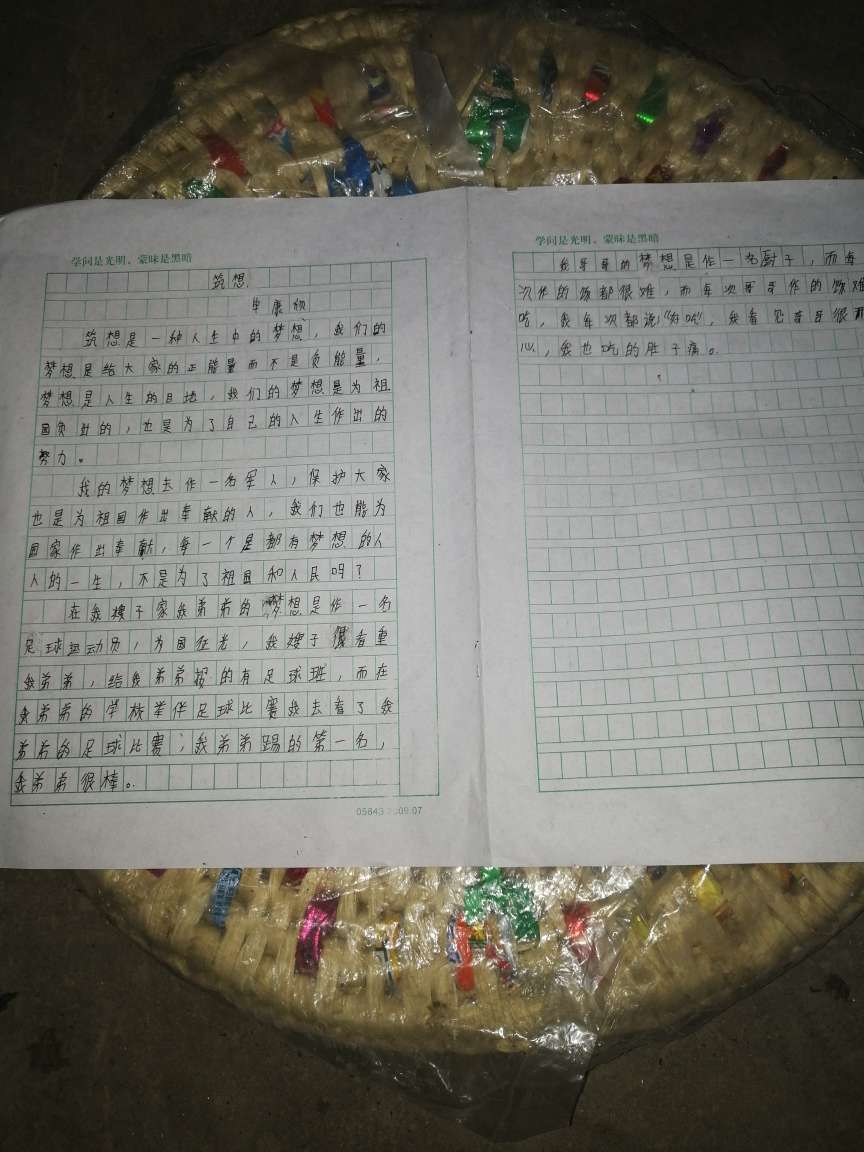 学问是光明、蒙昧是黑暗
筑想
毕康欣
筑想是一种人生中的梦想，我们的
梦想是给大家的正能量而不是负能量，
梦想是人生的目地，我们的梦想是为祖
国负出的，也是为了自己的人生作出的
努力。
我的梦想去作一名军人，保护大家
也是为祖国作出奉献的人，我们也能为
国家作出奉献，每一个是都有梦想的人
人的一生，不是为了祖国和人民吗？
在我嫂子家我弟弟的梦想是作一名
足球运动员，为国征光，我嫂子很看重
我弟弟，给我弟弟报的有足球班，而在
我弟弟的学校举伴足球比赛我去看了我
弟弟的足球比赛；我弟弟踢的第一名，
我弟弟很棒。
05843
09.07
学问是光明、蒙昧是黑暗
我哥哥的梦想是作一名厨子，而每
次作的饭都很难，而每次哥哥作的饭难
吃，我每次都说“好吃”，我看见哥哥很开
心，我也吃的肚子痛。